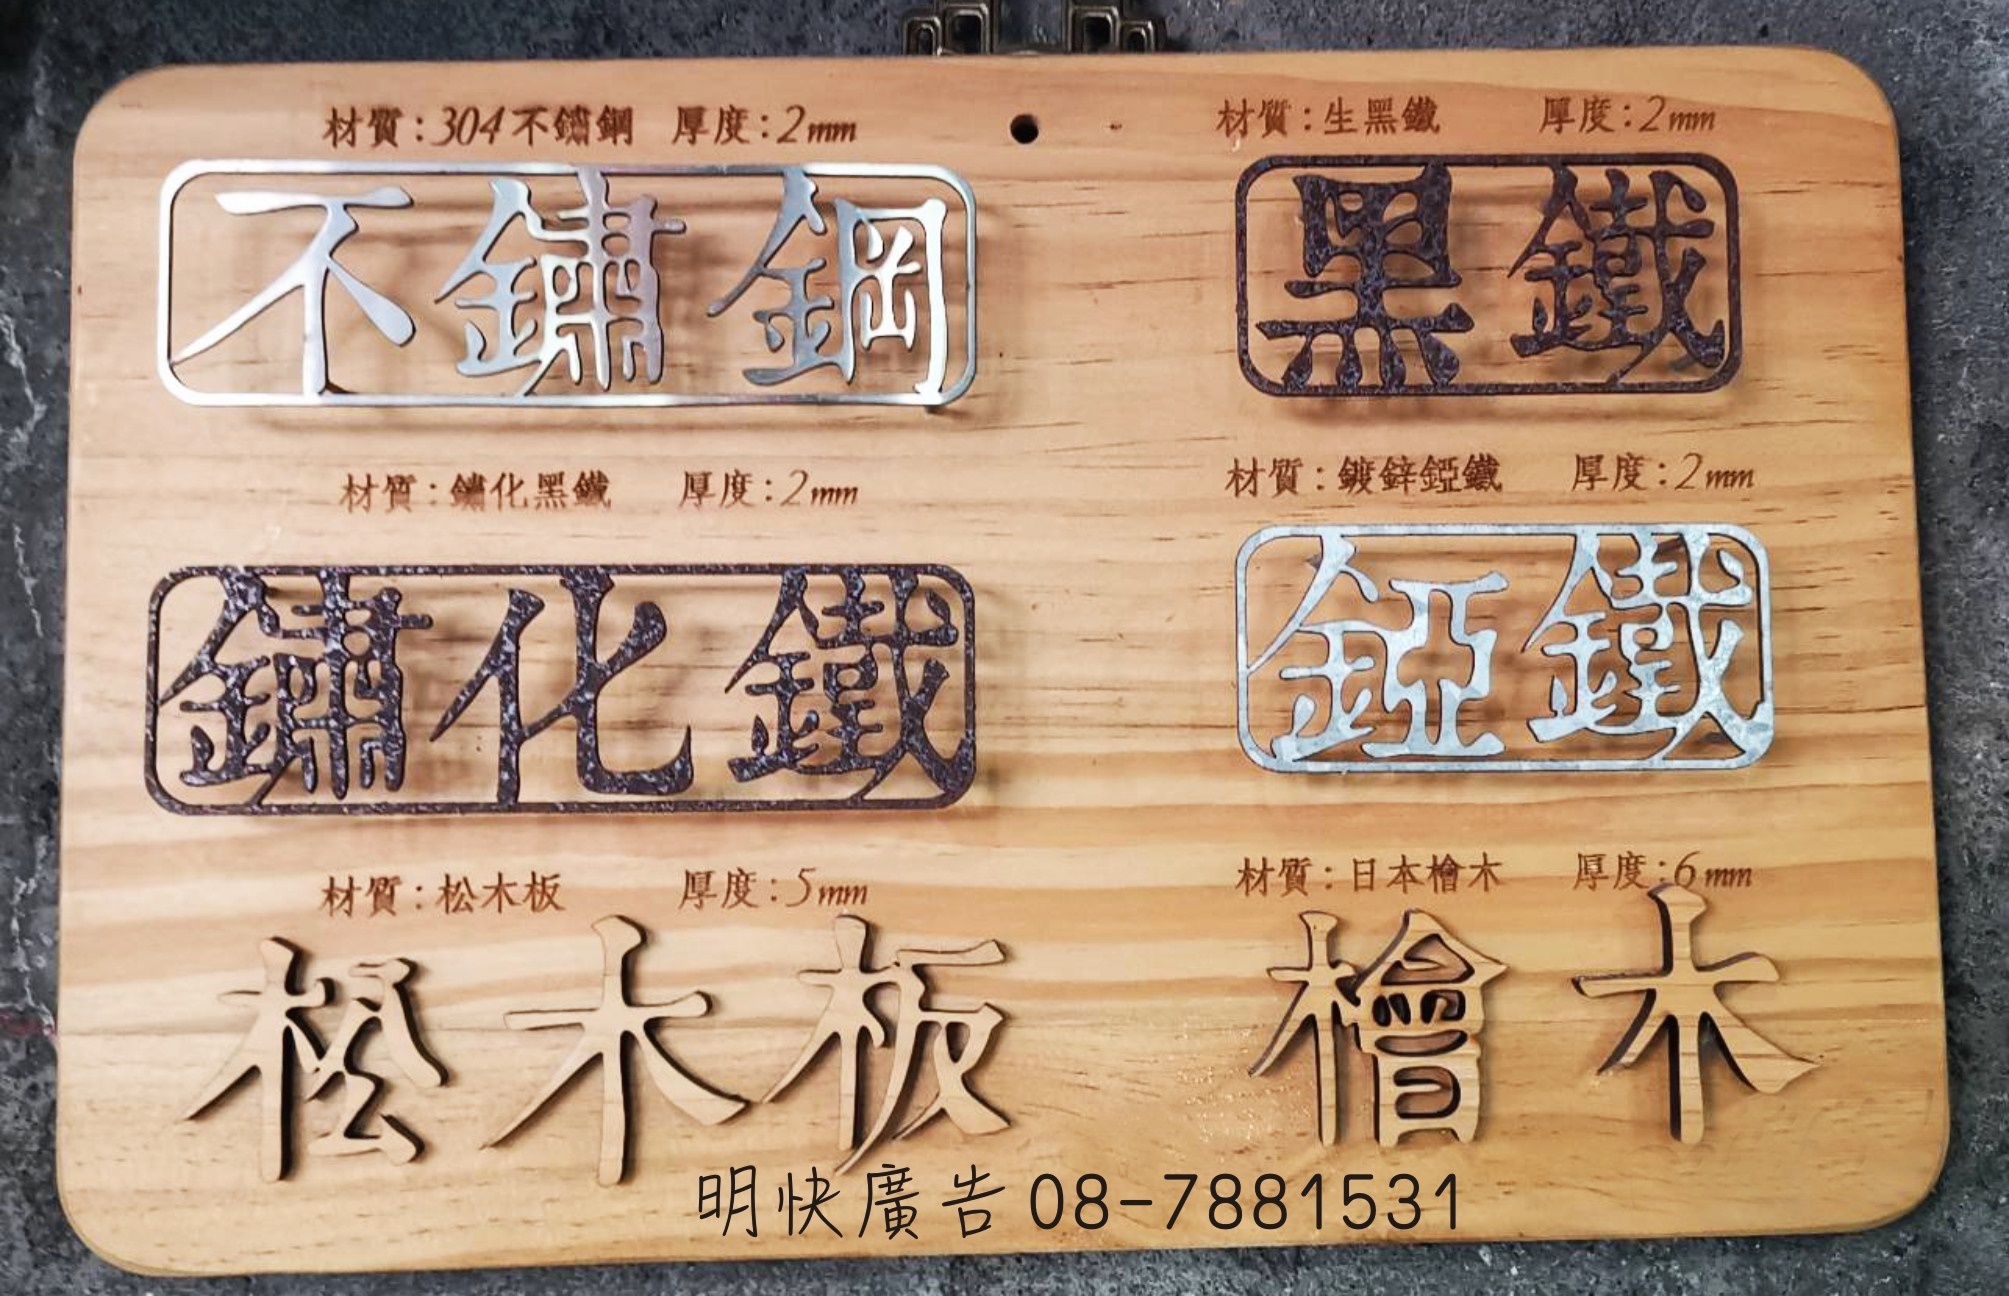 材質：304不鏽鋼 厚度：2mm
不鏽鋼
材質：生黑鐵 厚度：2mm
黑鐵
材質：鏽化黑鐵 厚度：2mm
鏽化鐵
材質：鍍鋅錏鐵 厚度：2mm
錏鐵
材質：松木板 厚度：5mm
松木板
材質：日本檜木 厚度：6mm
檜木
明快廣告 08-7881531